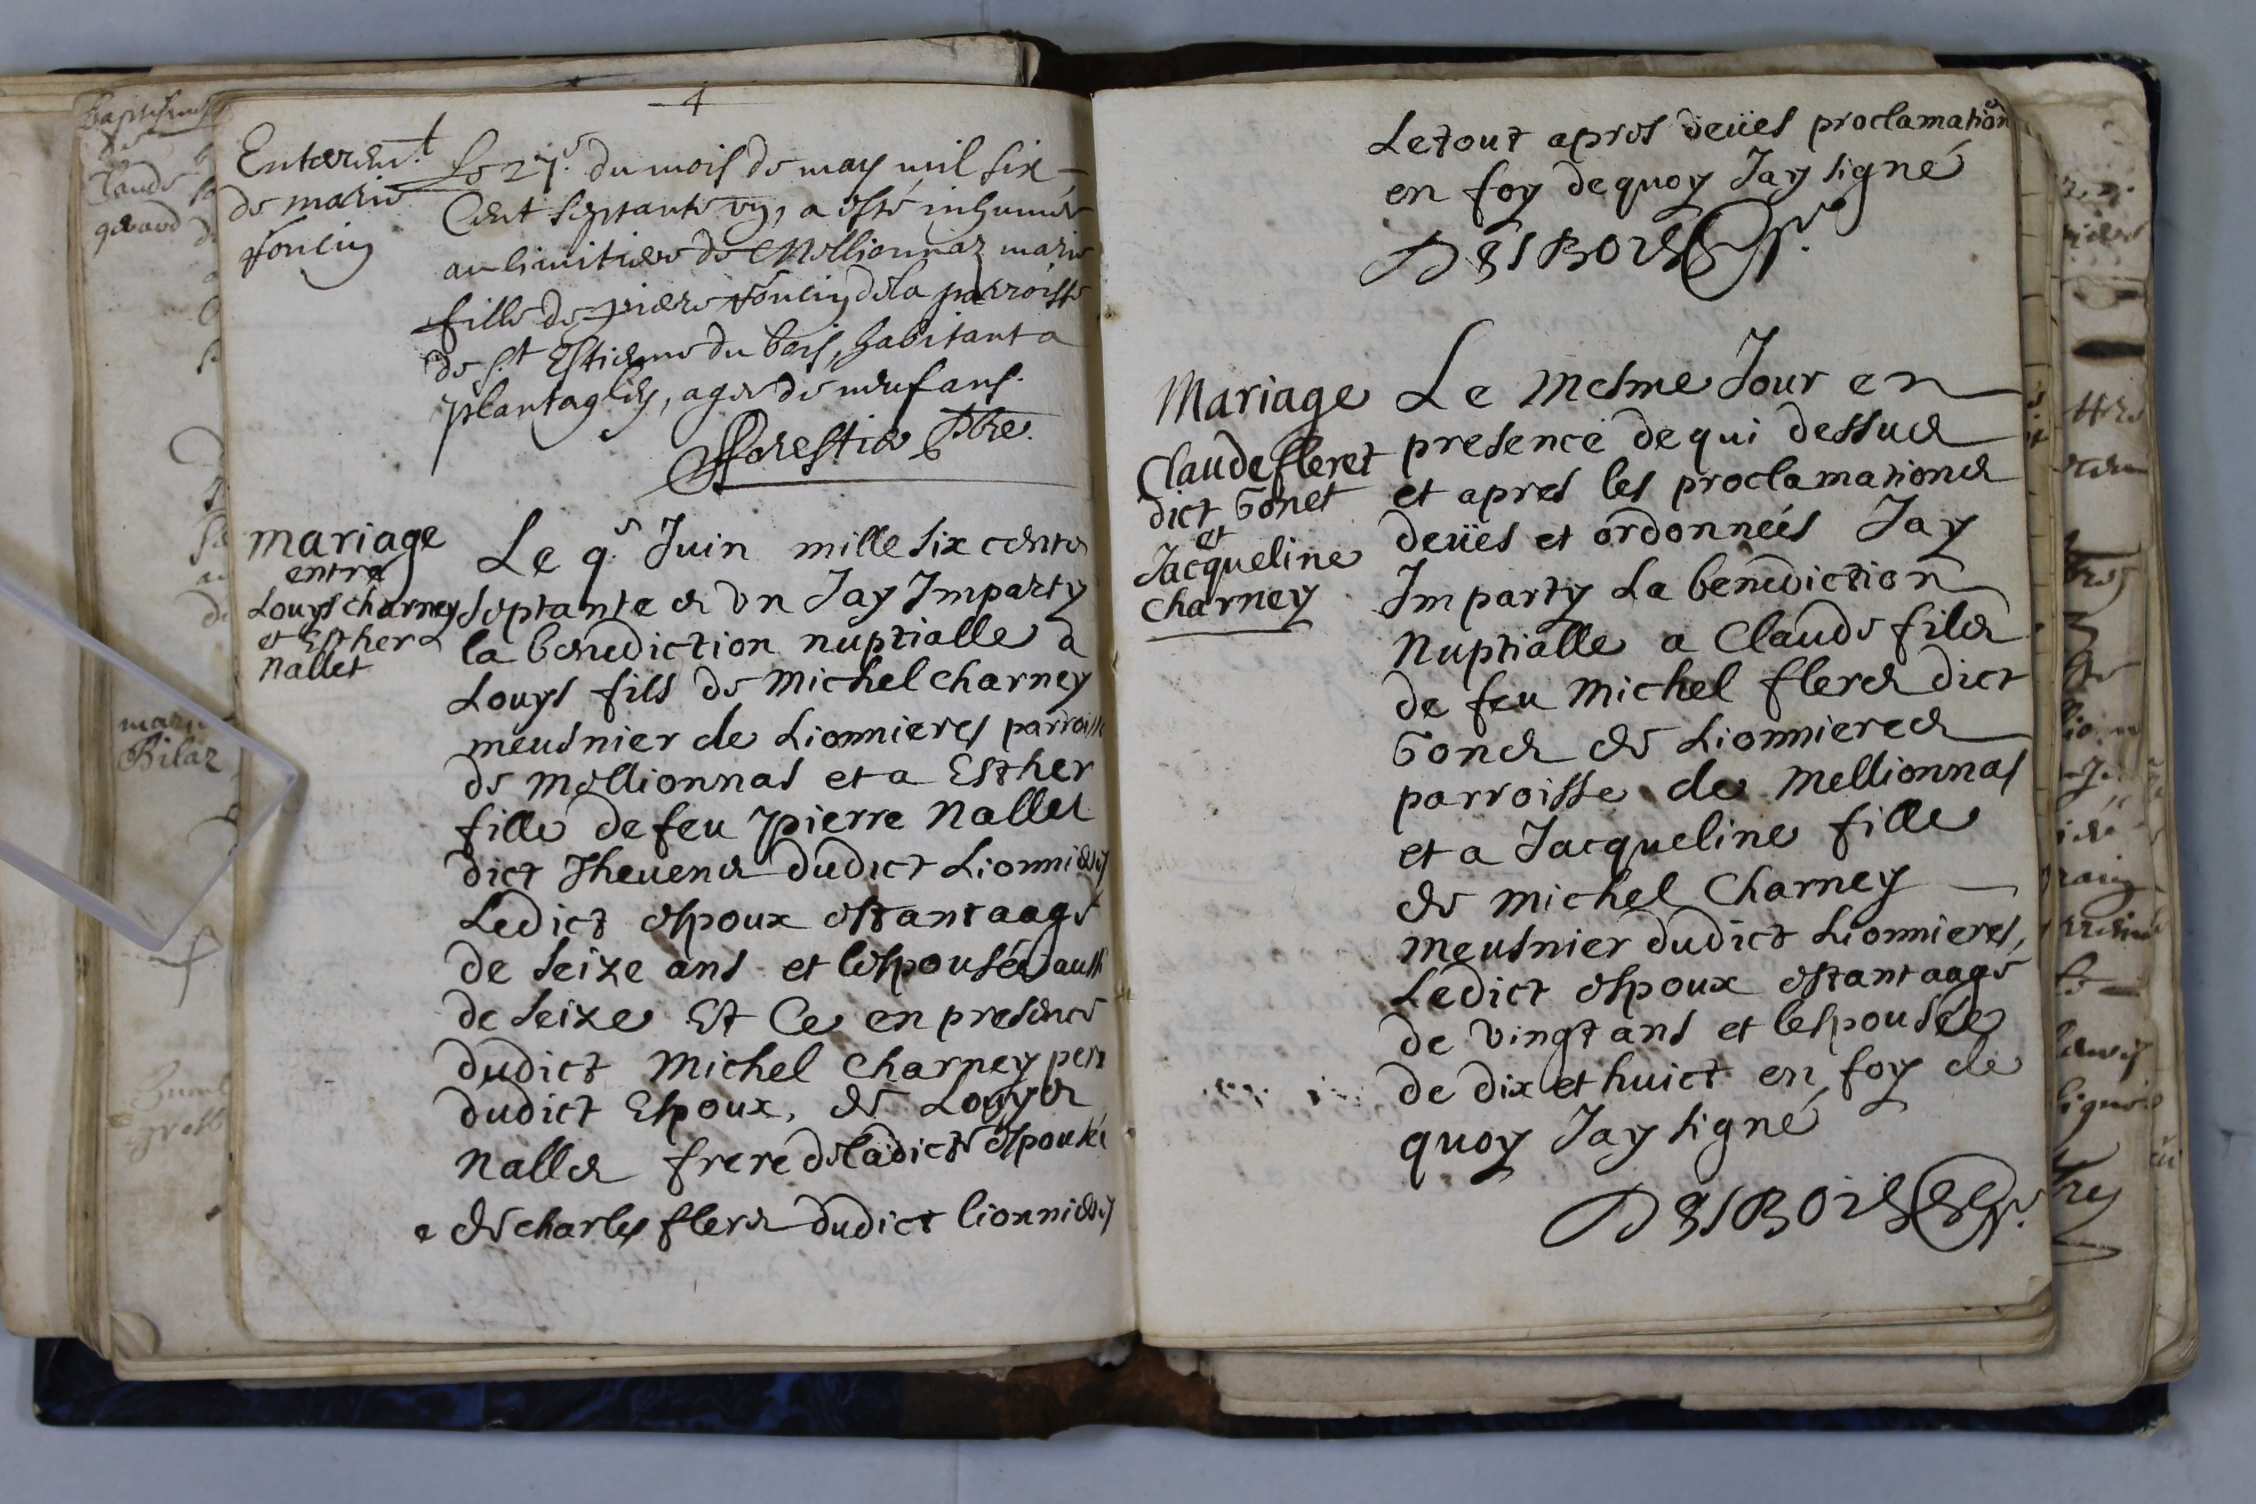 4
Enterem.t
de marie
foncin
Le 27.e du mois de may mil six
Cent septante un, a esté inhumée
au cimitiere de Mellionnaz marie
fille de piere foncin de la parroisse
de S.t Estienne du bois, habitant a
plantaglay, agee de neuf ans.
fforestier pbre.
Mariage
entre
Louys charney
et Esther
Nallet
Le 9.e Juin mille six cents
septante et un Jay Imparty
la benediction nuptialle a
Louys fils de Michel charney
meusnier de Lionnieres parroisse
de Mellionnas et a Esther
fille de feu pierre Nallet
dict Thevenet dudict Lionnieres
Ledict espoux estant aagé
de seize ans et lespousée aussi
de seize Et Ce en presence
dudict Michel Charney pere
dudict Espoux, de Louys
Nallet frere de ladicte espousée
e de charles fleret dudict lionnieres
Le tout apres deües proclamations
en foy de quoy Jay signé
DESBOIS
Mariage
Claude fleret
dict Gonet
et
Jacqueline
Charney
Le Mesme Jour en
presence de qui dessus
et apres les proclamations
deües et ordonnées Jay
Imparty La benediction
Nuptialle a Claude fils
de feu Michel fleret dict
Gonet de Lionnieres
parroisse de Mellionnas
et a Jacqueline fille
de Michel Charney
Meusnier dudict Lionnieres,
Ledict espoux estant aagé
de vingt ans et lespousée
de dix et huict en foy de
quoy Jay signé
DESBOIS